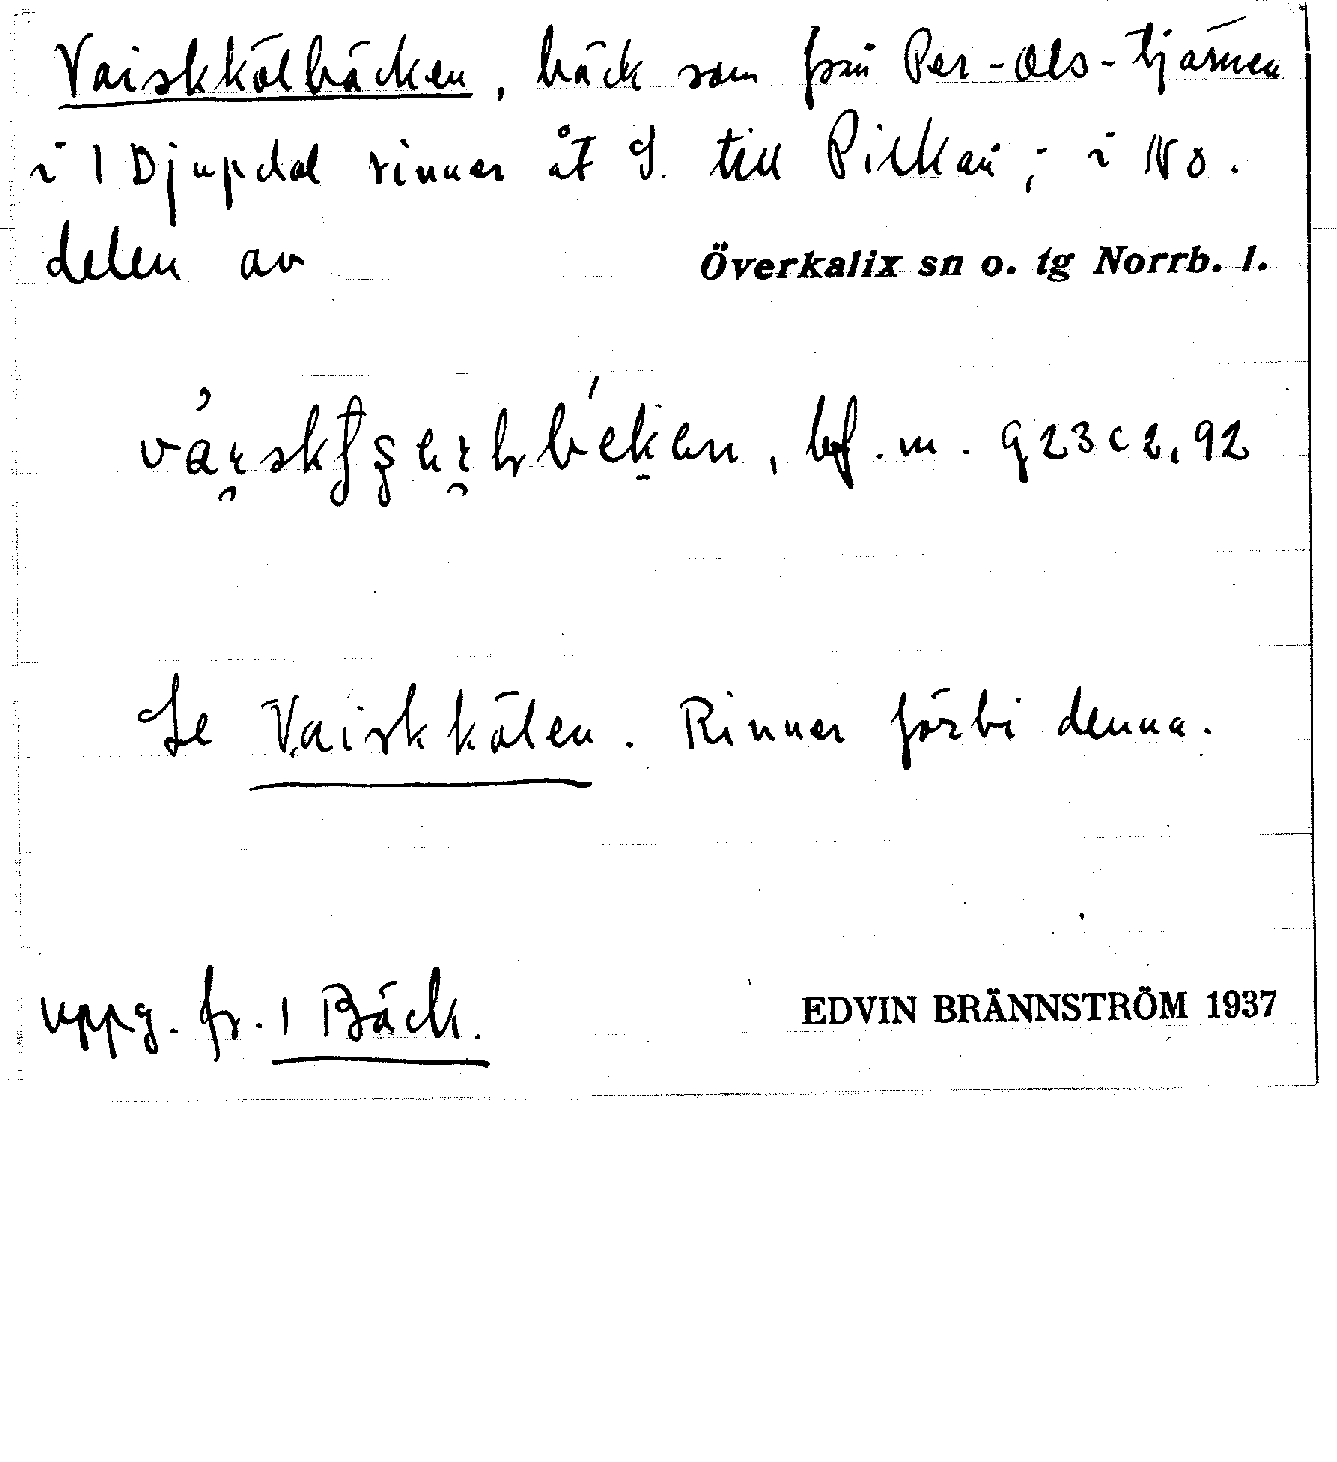 Vaiskkölbäcken, bäck som från Per-Ols-tjärnen
i 1 Djupdal rinner åt S. till Pilkån; i NO.
delen av Överkalix sn o. tg Norrb. l.
bf. m.
Se Vaiskkölen. Rinner förbi denna.
uppg. fr. 1 Bäck. EDVIN BRÄNNSTRÖM 1937